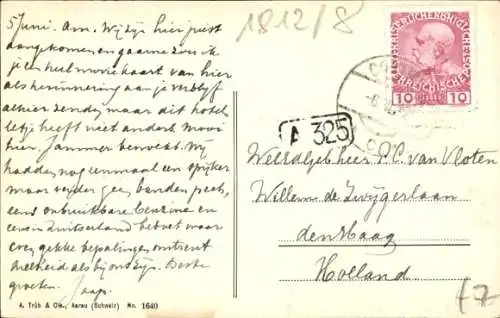 5 Juni. Am. Wij zijn hier juist
aangekomen en gaarne zou ik
je een heel mooie kaart van hier
als herinnering aan je verblijf
alhier zenden maar dit hotel
letje heeft niet anders. Mooi
hier. Jammer bewolkt. Wij
hadden nog eenmaal een spijker
maar verder geen banden pech,
eens onbruikbare benzine en
even Zwitserland behoet maar
even gekke bepalingen omtrent
snelheid als bij ons zijn. Beste
groeten. Jaap.
A. Trüb & Cie., Aarau (Schweiz) No. 1640
1812/8
KAISERLICHE KÖNIGLICHE
ÖSTERREICHISCHE
10 HELLER 10
A 325
WelEdGeb Heer P. C. van Vloten
Willem de Zwijgerlaan
den Haag
Holland
f7